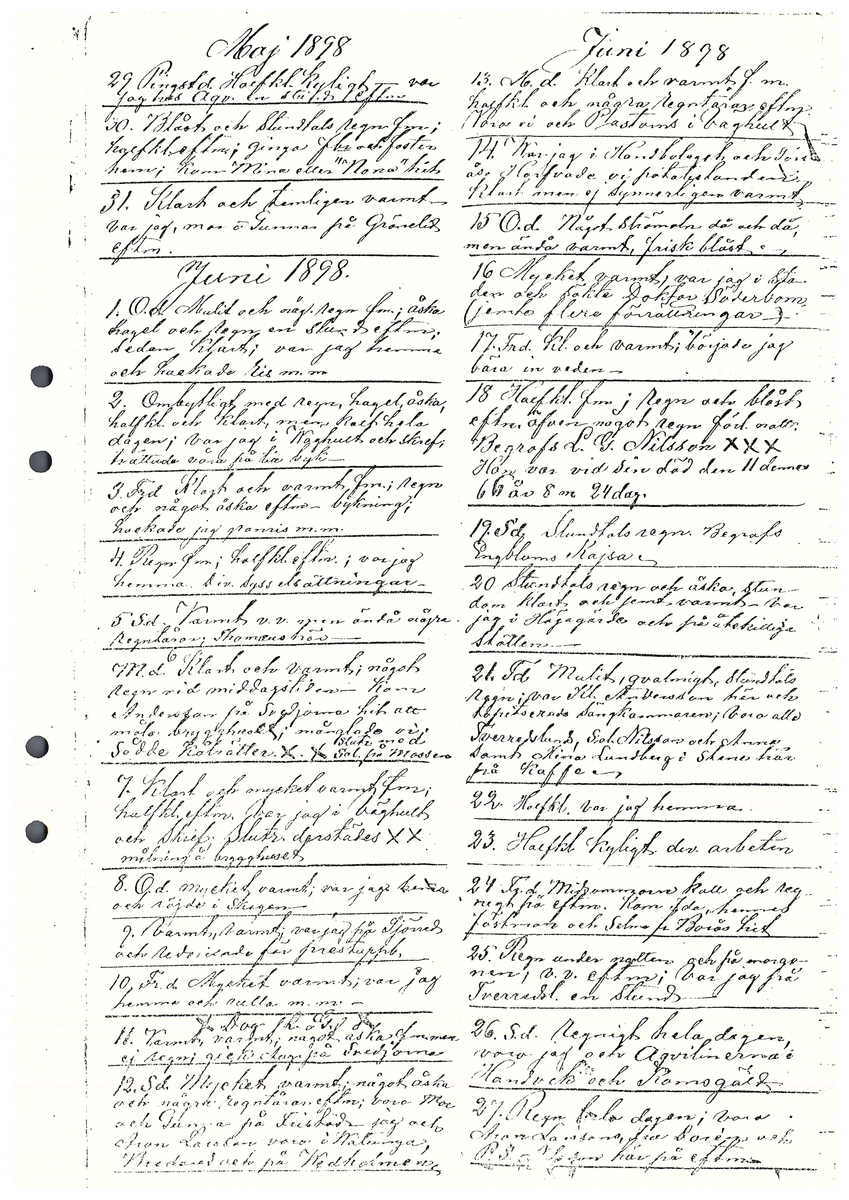 Maj 1898
29 Pingstd. Halfkl. Kyligt var
jag hos Aqv. en stund eftm
30. Blåst och Stundtals regn fm;
halfkl. eftm; gingo Ida och foster
hem; kom Mina eller "Nona" hit
31. Klart och temligen varmt
var jag, mor o Gunnar på Gränelid
eftm.
Juni 1898.
1. O.d. Mulit och någ. regn fm; åska
hagel och regn en stund eftm;
sedan klart; var jag hemma
och hackade ris m.m
2. Ombytligt med regn, hagel, åska,
halfkl. och klart, men kallt hela
dagen; var jag i Wäghult och skref;
tvättade våra på sia byk
3. Frd Klart och varmt fm; regn
och något åska eftm bykning;
hackade jag granris m.m.
4. Regn fm; halfkl. eftm.; var jag
hemma. div. sysselsättningar
5 Sd. Varmt v.v. men ändå några
regntårar; hemma
M.d. 6 Klart och varmt; något
regn vid middagstiden Kom
Andersson på Svedjorna hit att
måla brygghuset; månglade vi;
Sådde kålrötter X. X Slutz med
Sal. på Mossen
7. Klart och mycket varmt fm;
halfkl. eftm. var jag i Wäghult
och skref. Slutz derstädes XX
målning å brygghuset
8. O.d. mycket varmt; var jag hemma
och röjde i Skogen
9. Varmt, varmt; var jag på Sjöared
och redovisade för prestuppb.
10. Fr.d Mycket varmt; var jag
hemma och rulla m.m
X Dog L. G. N X
11. Varmt, varmt; något åska fm men
ej regn; gick åter på Svedjorna
12. Sd. Mycket varmt; något åska
och några regntårar eftm; voro Mor
och Gunnar på Fristad jag och
Aron Larsson voro i Wälunga,
Bredared och på Wedholmen
Juni 1898
13. M.d. Klart och varmt f.m.
halfkl. och några regntårar eftm
Voro vi och Plastoms i Väghult
14. Var jag i Handbolaget och
Harfvade vi potatislanden
Klart men ej synnerligen varmt
15 O.d. Något strömoln då och då,
men ändå varmt, frisk blåst
16 Mycket varmt; var jag i sta-
den och sökte Doktor Söderbom
(jemte flere förrättningar)
17. Frd. kl. och varmt; började jag
bära in veden
18 Halfkl. fm; regn och blåst
eftm. äfven något regn förl. natt.
Begrofs L. G. Nilsson XXX
Han var vid sin död den 11 dennes
66 år 8 m 24 dag.
19. Sd. Stundtals regn. Begrofs
Engbloms Kajsa
20 Stundtals regn och åska, stun-
dom klart och jemt varmt var
jag i Högagärde och på åtskilliga
Ställen
21. Td Mulit, qvalmigt, stundtals
regn; var Kl. Andersson här och
tapitserade sängkammaren; voro alla
Tverredslund, Sal. Nilsson och Anna
samt Nina Lundberg i Skene här
på Kaffe
22. Halfkl. var jag hemma.
23. Halfkl kyligt div. arbeten
24 Fr.d Midsommarn kall och reg-
nigt på eftm. Kom Ida, hennes
fästman och Selma fr Borås hit
25. Regn under natten och på morgo-
nen; v.v. eftm; var jag på
Tverredsl. en stund
26. S.d. Regnigt hela dagen,
voro jag och Aqvilinerna i
Handvck och Ramsgäld
27. Regn hela dagen; voro
Aron Larsons, fra Borås och
P. S. son här på eftm